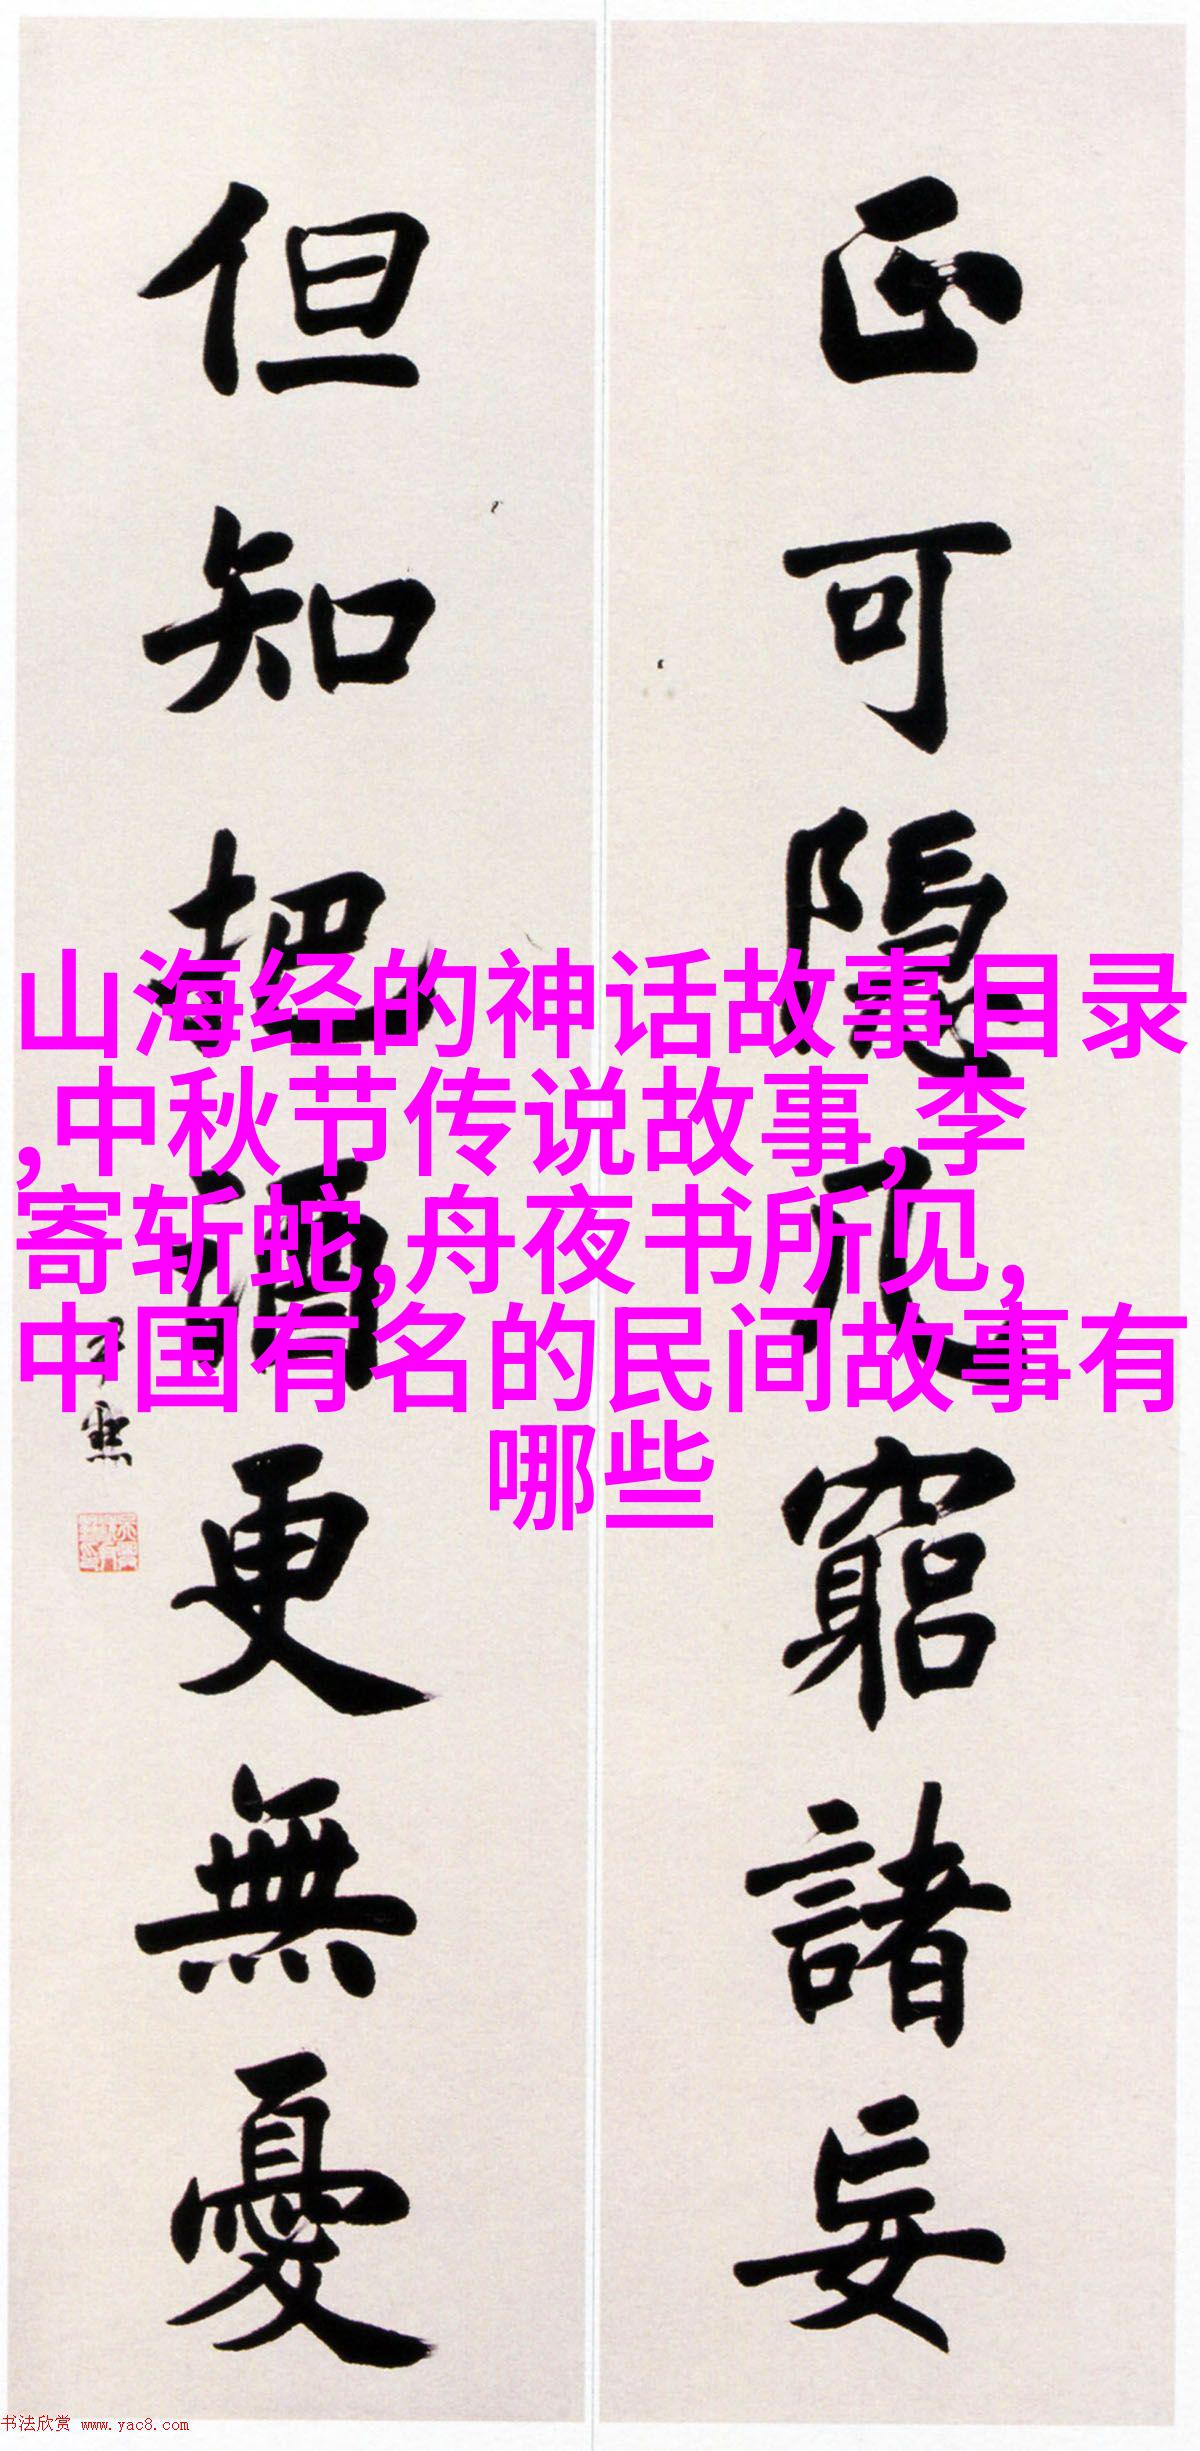 正可隱几窮諸妄
但知把酒更無憂
子燾
山海经的神话故事目录
,中秋节传说故事,李
寄斩蛇,舟夜书所见,
中国有名的民间故事有
哪些
书法欣赏 www.yac8.com